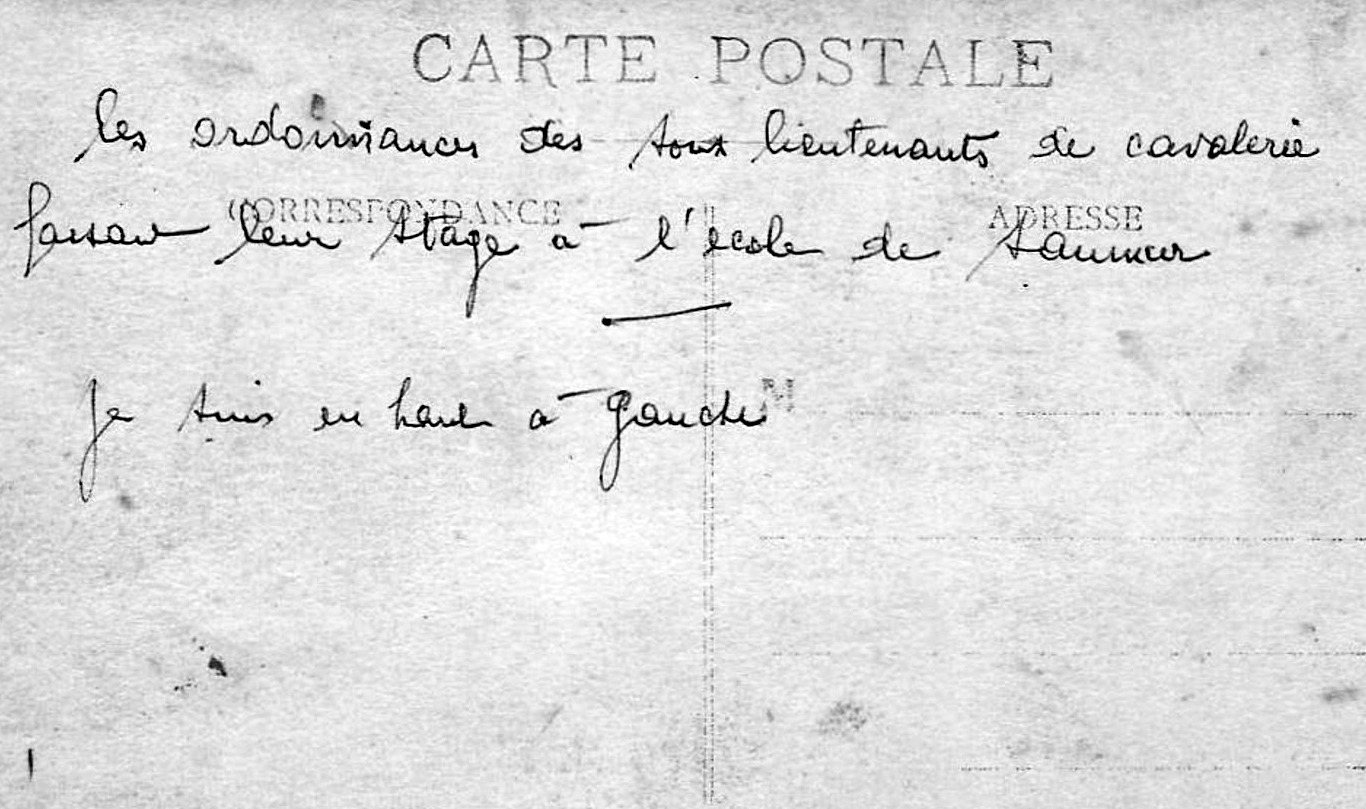 CARTE POSTALE
les ordonnances des sous lieutenants de cavalerie
CORRESPONDANCE ADRESSE
faisant leur stage à l'école de Saumur
je suis en haut à gauche
M